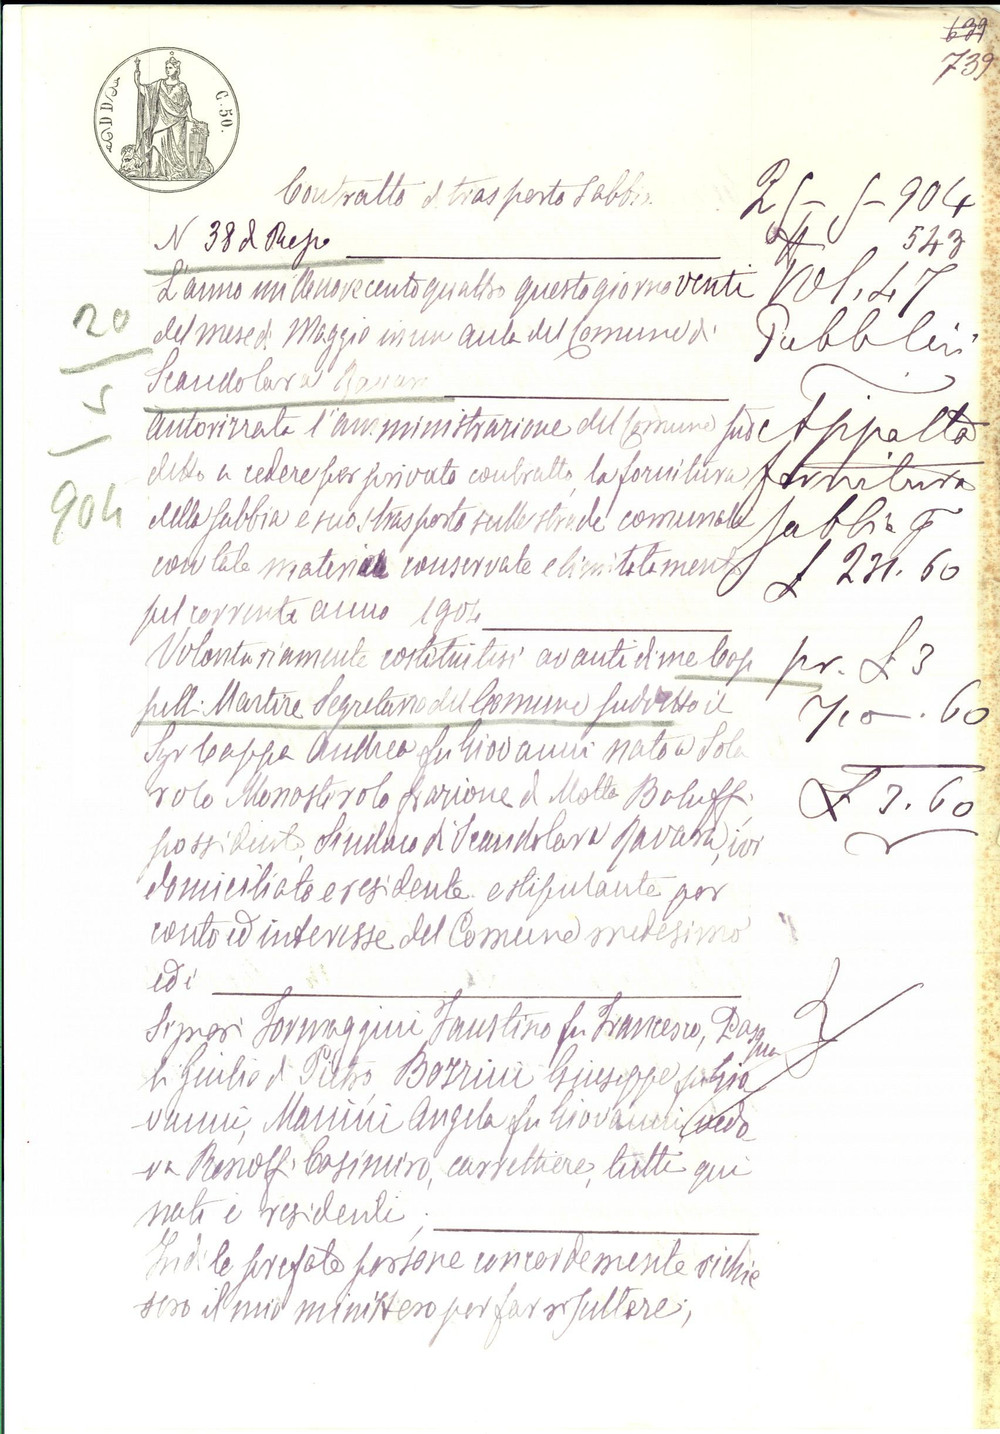 639
739
C. 50.
Contratto di trasporto Sabbia
N 38 di Rep.
L'anno millenovecentoquattro questo giorno venti
del mese di Maggio in un aula del Comune di
Scandolara Ravara
Autorizzata l'amministrazione del Comune sud
detto a cedere per privato contratto, la fornitura
della sabbia e suo trasporto sulle strade comunale
con tale materia conservate e limitatamente
pel corrente anno 1904
Volontariamente costituitisi avanti di me Cop
pelli Martire Segretario del Comune suddetto il
Sigr Cappa Andrea fu Giovanni nato a Sola
rolo Monasterolo frazione di Motta Baluffi
possidente, Sindaco di Scandolara Ravara, ivi
domiciliato e residente e stipulante per
conto ed interesse del Comune medesimo
ed i
Signori Formaggini Faustino fu Francesco, Pasqua
li Giulio di Pietro Bozzini Giuseppe fu Gio
vanni, Manini Angela fu Giovanni vedo
va Casimiro, carrettiere, tutti qui
nati e residenti;
Indi le prefate persone concordemente richie
sero il mio ministero per far risultare;
20
5
904
25-5-904
N 543
Vol. 47
Pubblici
Appalto
fornitura
sabbia
£ 231.60
pr. £ 3
.60
£ 3.60